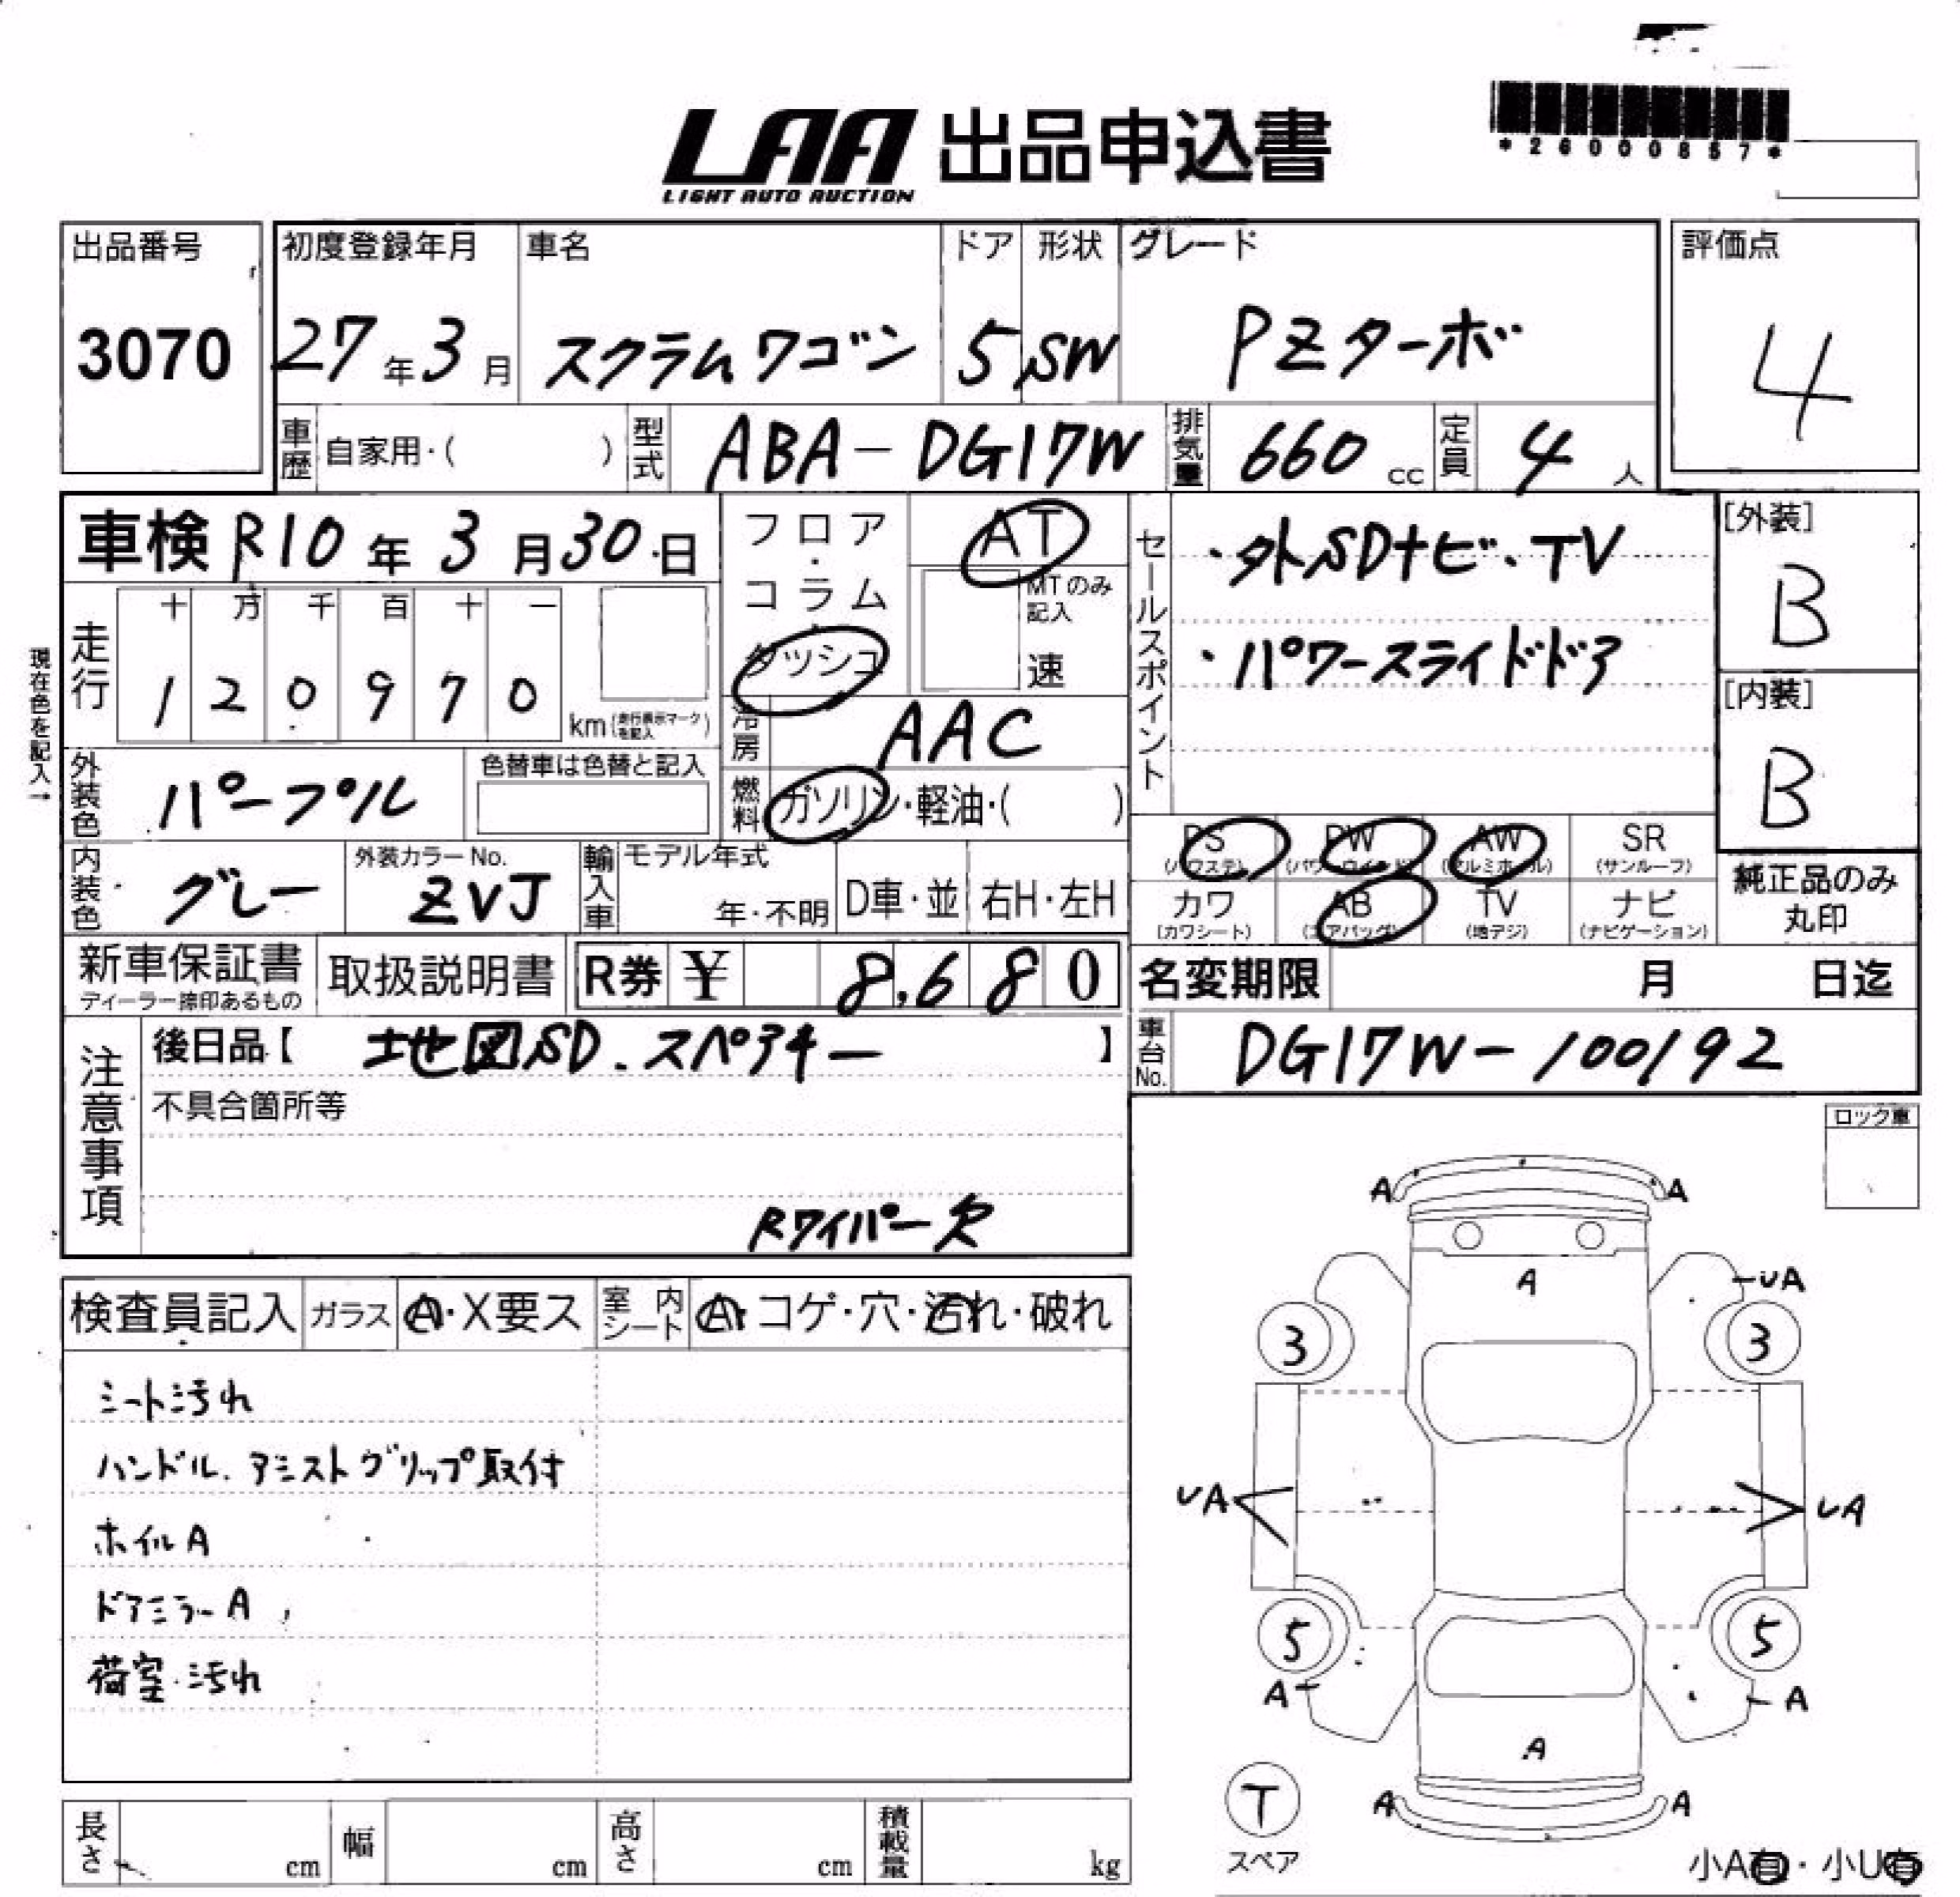 LAA 出品申込書
LIGHT AUTO AUCTION
*26000857*
出品番号
3070
初度登録年月
27年3月
車名
スクラムワゴン
ドア
5
形状
SW
グレード
PZターボ
評価点
4
車歴 自家用・( )
型式 ABA-DG17W
排気量 660 cc
定員 4 人
車検 R10年3月30日
フロア・コラム・ダッシュ
AT
MTのみ記入
速
セールスポイント
・外SDナビ、TV
・パワースライドドア
[外装]
B
[内装]
B
現在色を記入→
走行
十 万 千 百 十 一
1 2 0 9 7 0
km(走行表示マークを記入)
冷房 AAC
外装色 パープル
色替車は色替と記入
燃料 ガソリン・軽油・( )
PS PW AW SR
(パワステ) (パワーウインド) (アルミホイール) (サンルーフ)
カワ AB TV ナビ
(カワシート) (エアバッグ) (地デジ) (ナビゲーション)
純正品のみ丸印
内装色 グレー
外装カラーNo.
ZVJ
輸入車
モデル年式
年・不明
D車・並
右H・左H
新車保証書
ディーラー捺印あるもの
取扱説明書
R券 ¥ 8,680
名変期限 月 日迄
注意事項
後日品【 地図SD、スペアキー 】
車台No. DG17W-100192
不具合箇所等
Rワイパー欠
ロック車
検査員記入 ガラス A・X要ス 室内シート A・コゲ・穴・汚れ・破れ
シート汚れ
ハンドル、アシストグリップ取付
ホイルA
ドアミラーA
荷室汚れ
A A
A UA
3 3
UA UA
5 5
A A
A
T
スペア
A A
小A有・小U有
長さ cm
幅 cm
高さ cm
積載量 kg